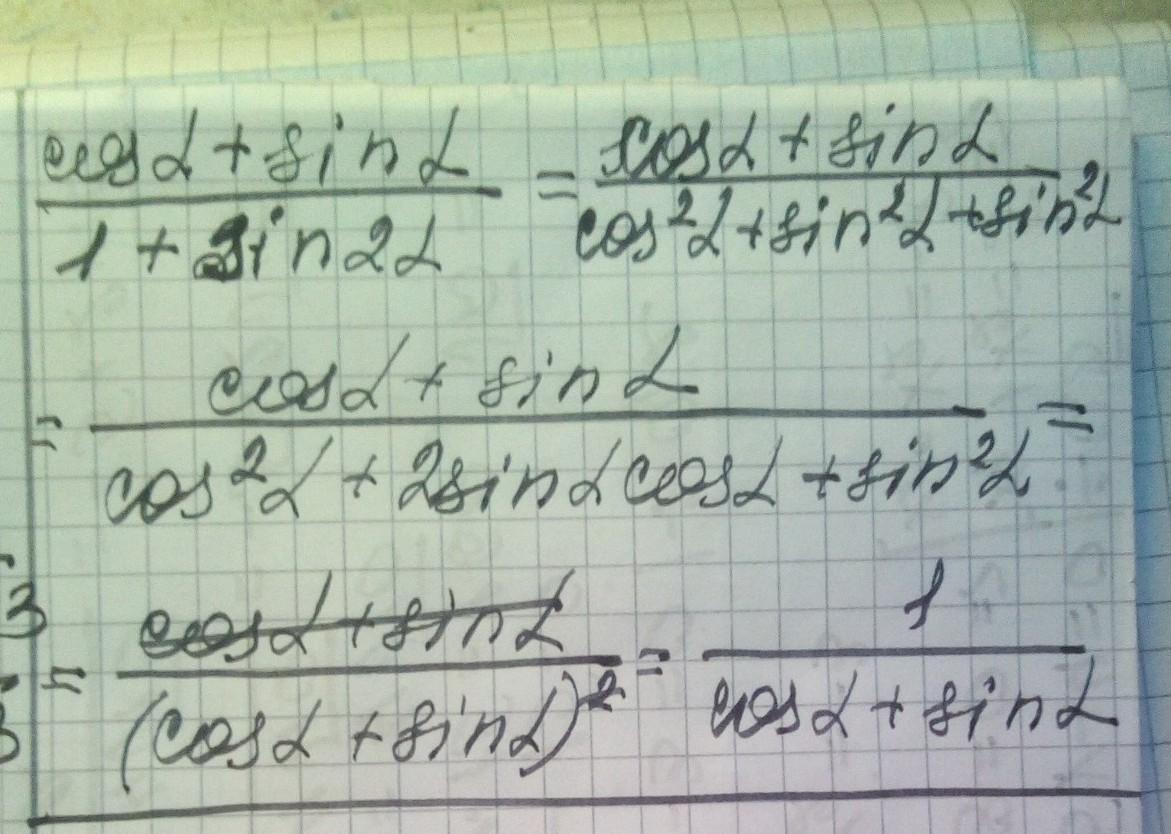 (cosα + sinα)/(1 + sin2α) = (cosα + sinα)/(cos²α + sin²α + sin²α
= (cosα + sinα)/(cos²α + 2sinα cosα + sin²α) =
= (cosα + sinα)/(cosα + sinα)² = 1/(cosα + sinα)